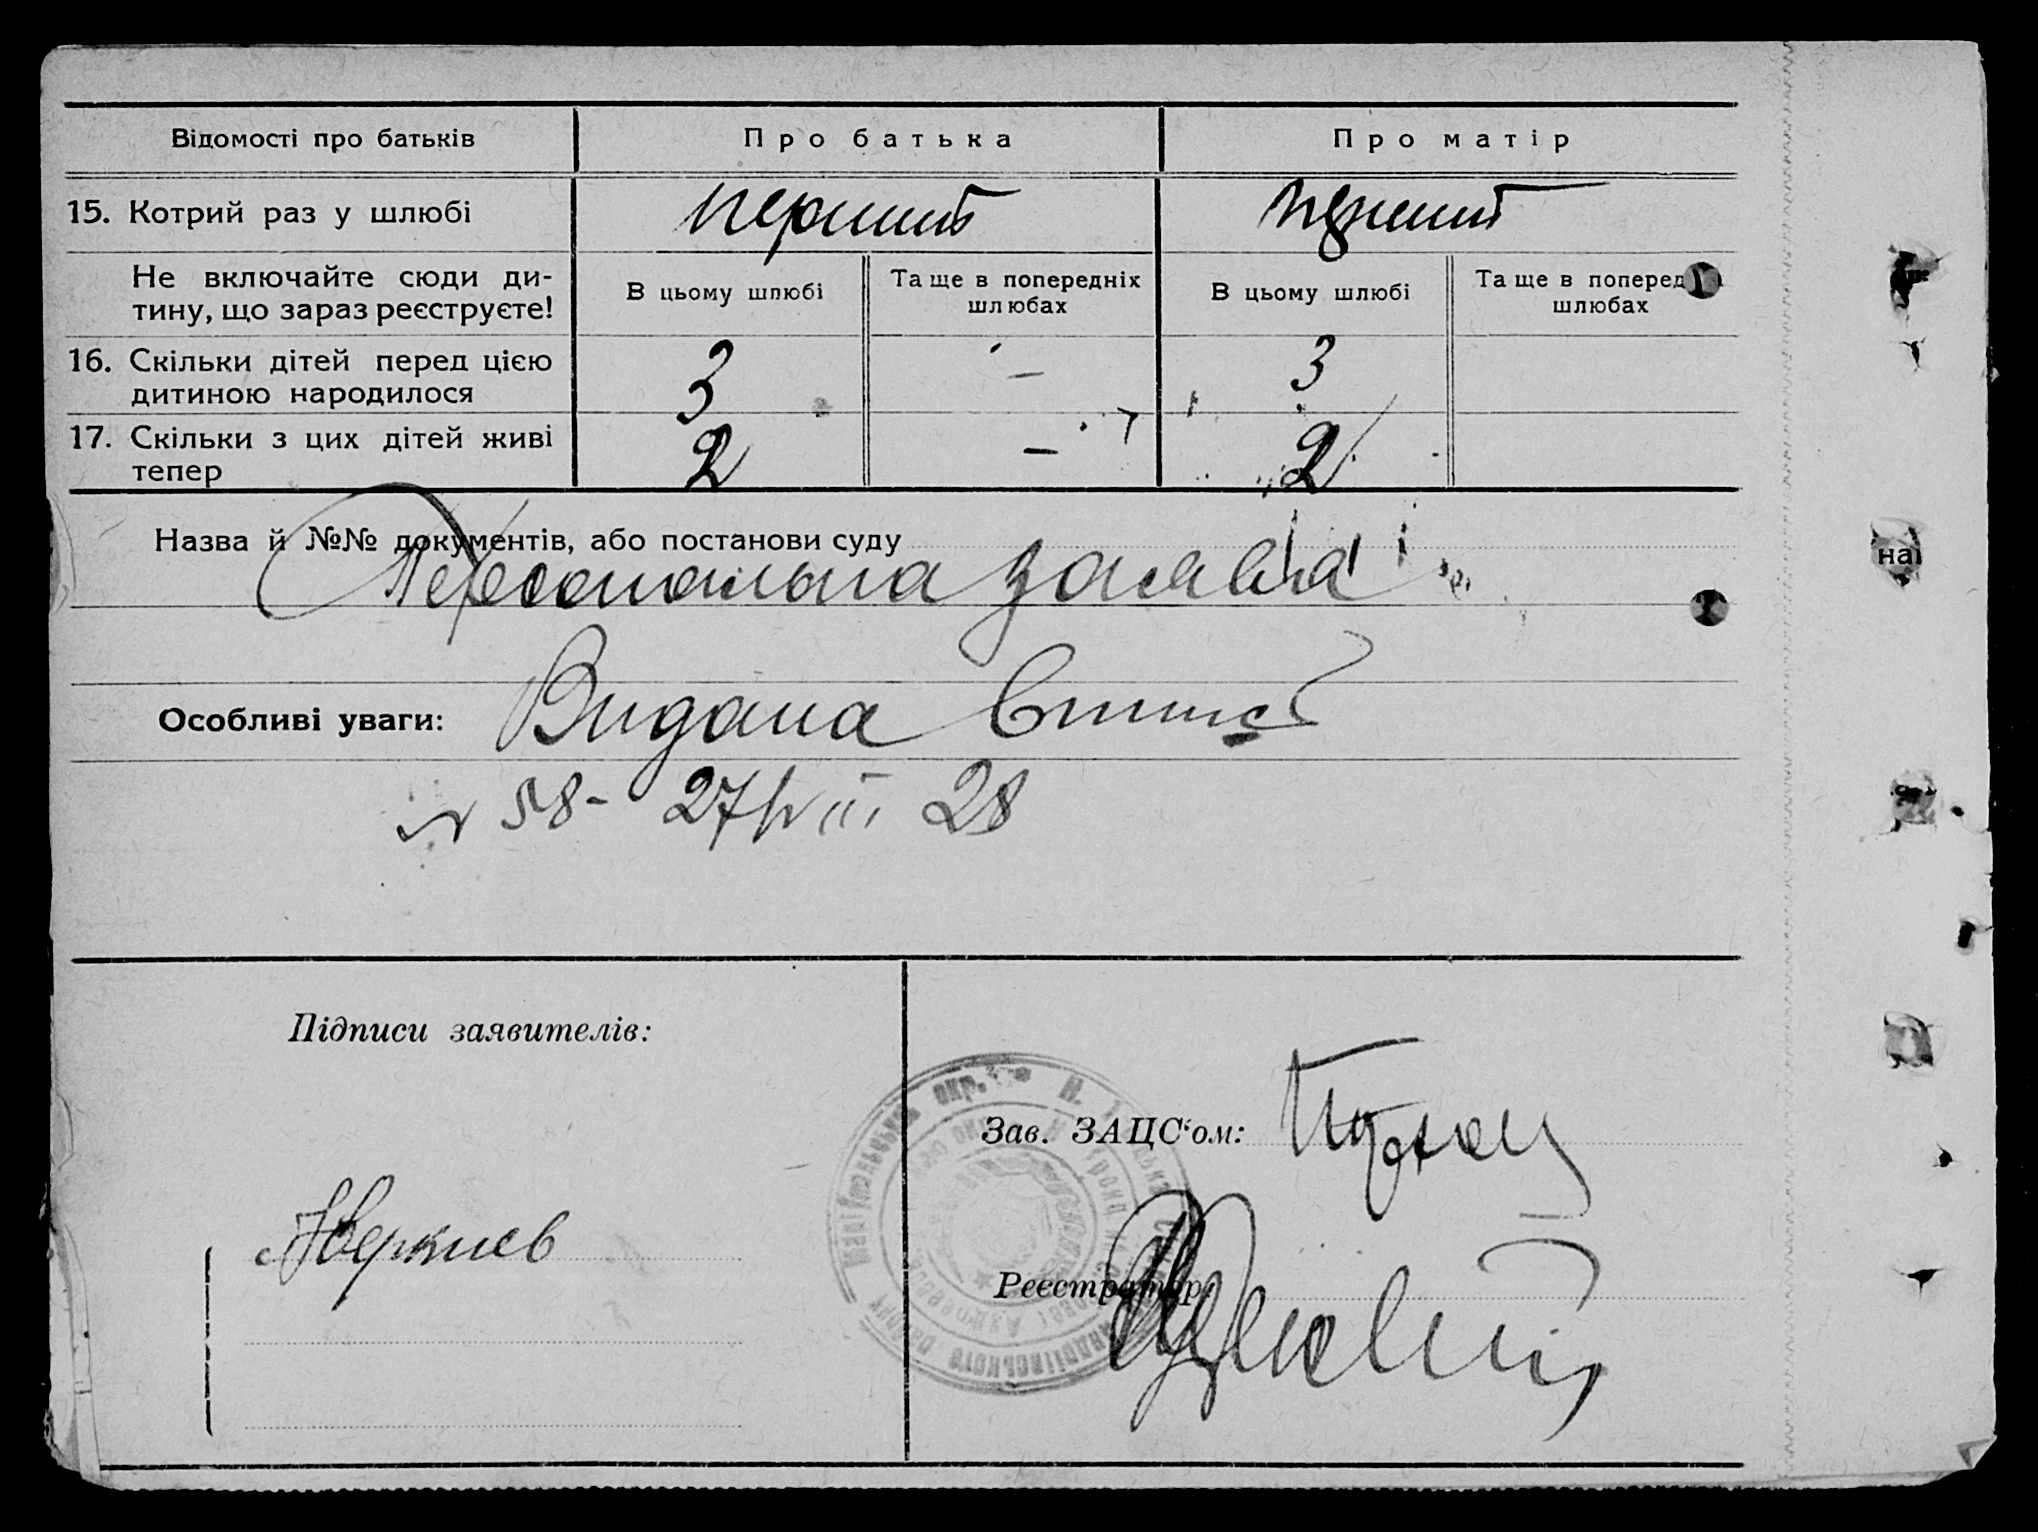 Відомості про батьків
Про батька
Про матір
15. Котрий раз у шлюбі
перший
перший
Не включайте сюди ди-
тину, що зараз реєструєте!
В цьому шлюбі
Та ще в попередніх
шлюбах
В цьому шлюбі
Та ще в поперед
шлюбах
16. Скільки дітей перед цією
дитиною народилося
3
–
3
17. Скільки з цих дітей живі
тепер
2
–
2
Назва й №№ документів, або постанови суду
Персональна заява
на
Особливі уваги:
Видана
58 - 27/VIII 28
Підписи заявителів:
окр. * Н.
Зав. ЗАЦС‘ом:
Аверкиев
Реєстратор: